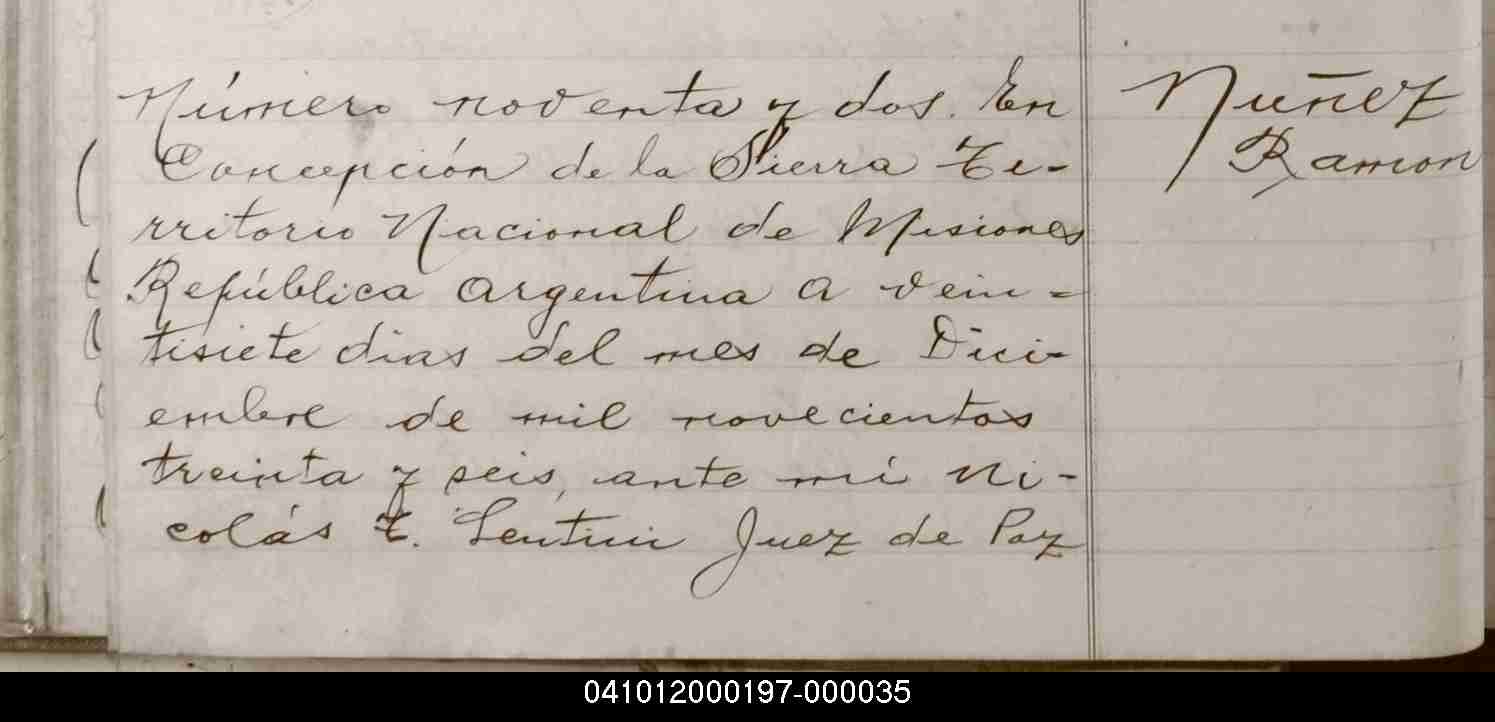 Número noventa y dos. En
Concepción de la Sierra Te-
rritorio Nacional de Misiones
República Argentina a vein-
tisiete dias del mes de Dici-
embre de mil novecientos
treinta y seis, ante mi Ni-
colás T. Sentini Juez de Paz
Nuñez
Ramon
041012000197-000035